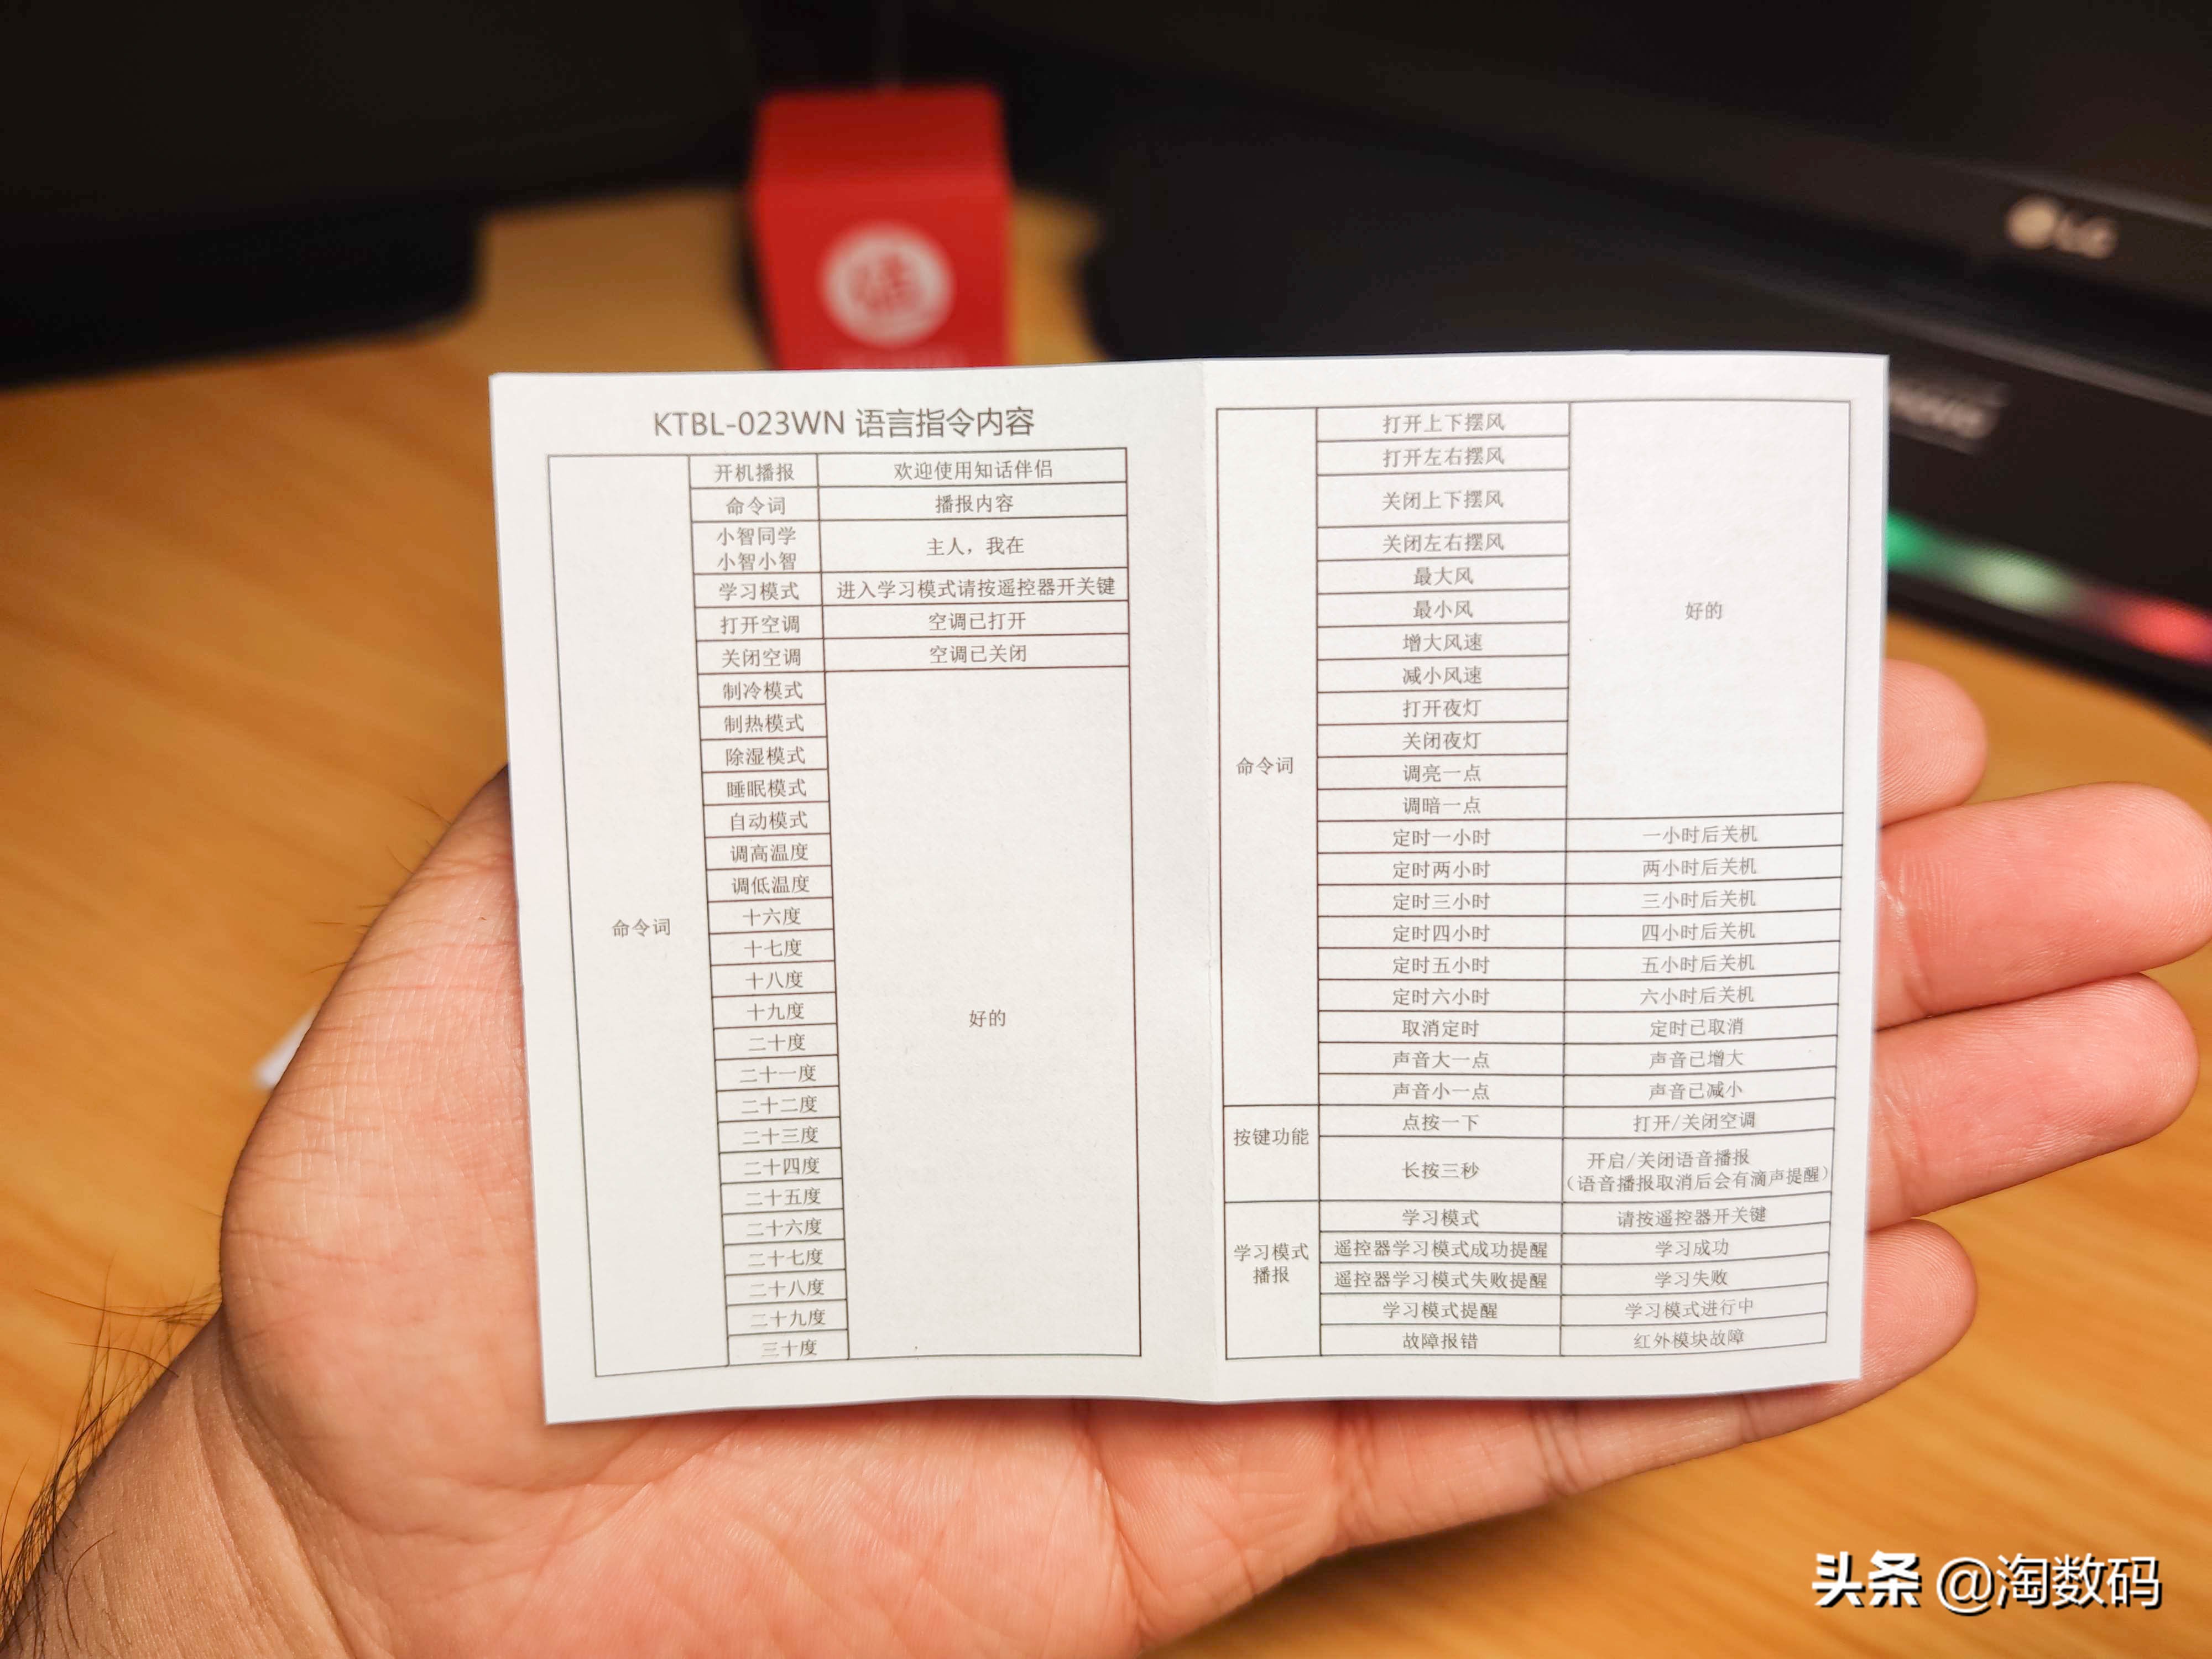 LG
KTBL-023WN 语言指令内容
命令词
开机播报 欢迎使用知话伴侣
命令词 播报内容
小智同学
小智小智
主人，我在
学习模式 进入学习模式请按遥控器开关键
打开空调 空调已打开
关闭空调 空调已关闭
制冷模式
制热模式
除湿模式
睡眠模式
自动模式
调高温度
调低温度
十六度
十七度
十八度
十九度
二十度
二十一度
二十二度
二十三度
二十四度
二十五度
二十六度
二十七度
二十八度
二十九度
三十度
好的
命令词
打开上下摆风
打开左右摆风
关闭上下摆风
关闭左右摆风
最大风
最小风
增大风速
减小风速
打开夜灯
关闭夜灯
调亮一点
调暗一点
好的
定时一小时 一小时后关机
定时两小时 两小时后关机
定时三小时 三小时后关机
定时四小时 四小时后关机
定时五小时 五小时后关机
定时六小时 六小时后关机
取消定时 定时已取消
声音大一点 声音已增大
声音小一点 声音已减小
按键功能
点按一下 打开/关闭空调
长按三秒 开启/关闭语音播报
（语音播报取消后会有滴声提醒）
学习模式
播报
学习模式 请按遥控器开关键
遥控器学习模式成功提醒 学习成功
遥控器学习模式失败提醒 学习失败
学习模式提醒 学习模式进行中
故障报错 红外模块故障
头条 @淘数码